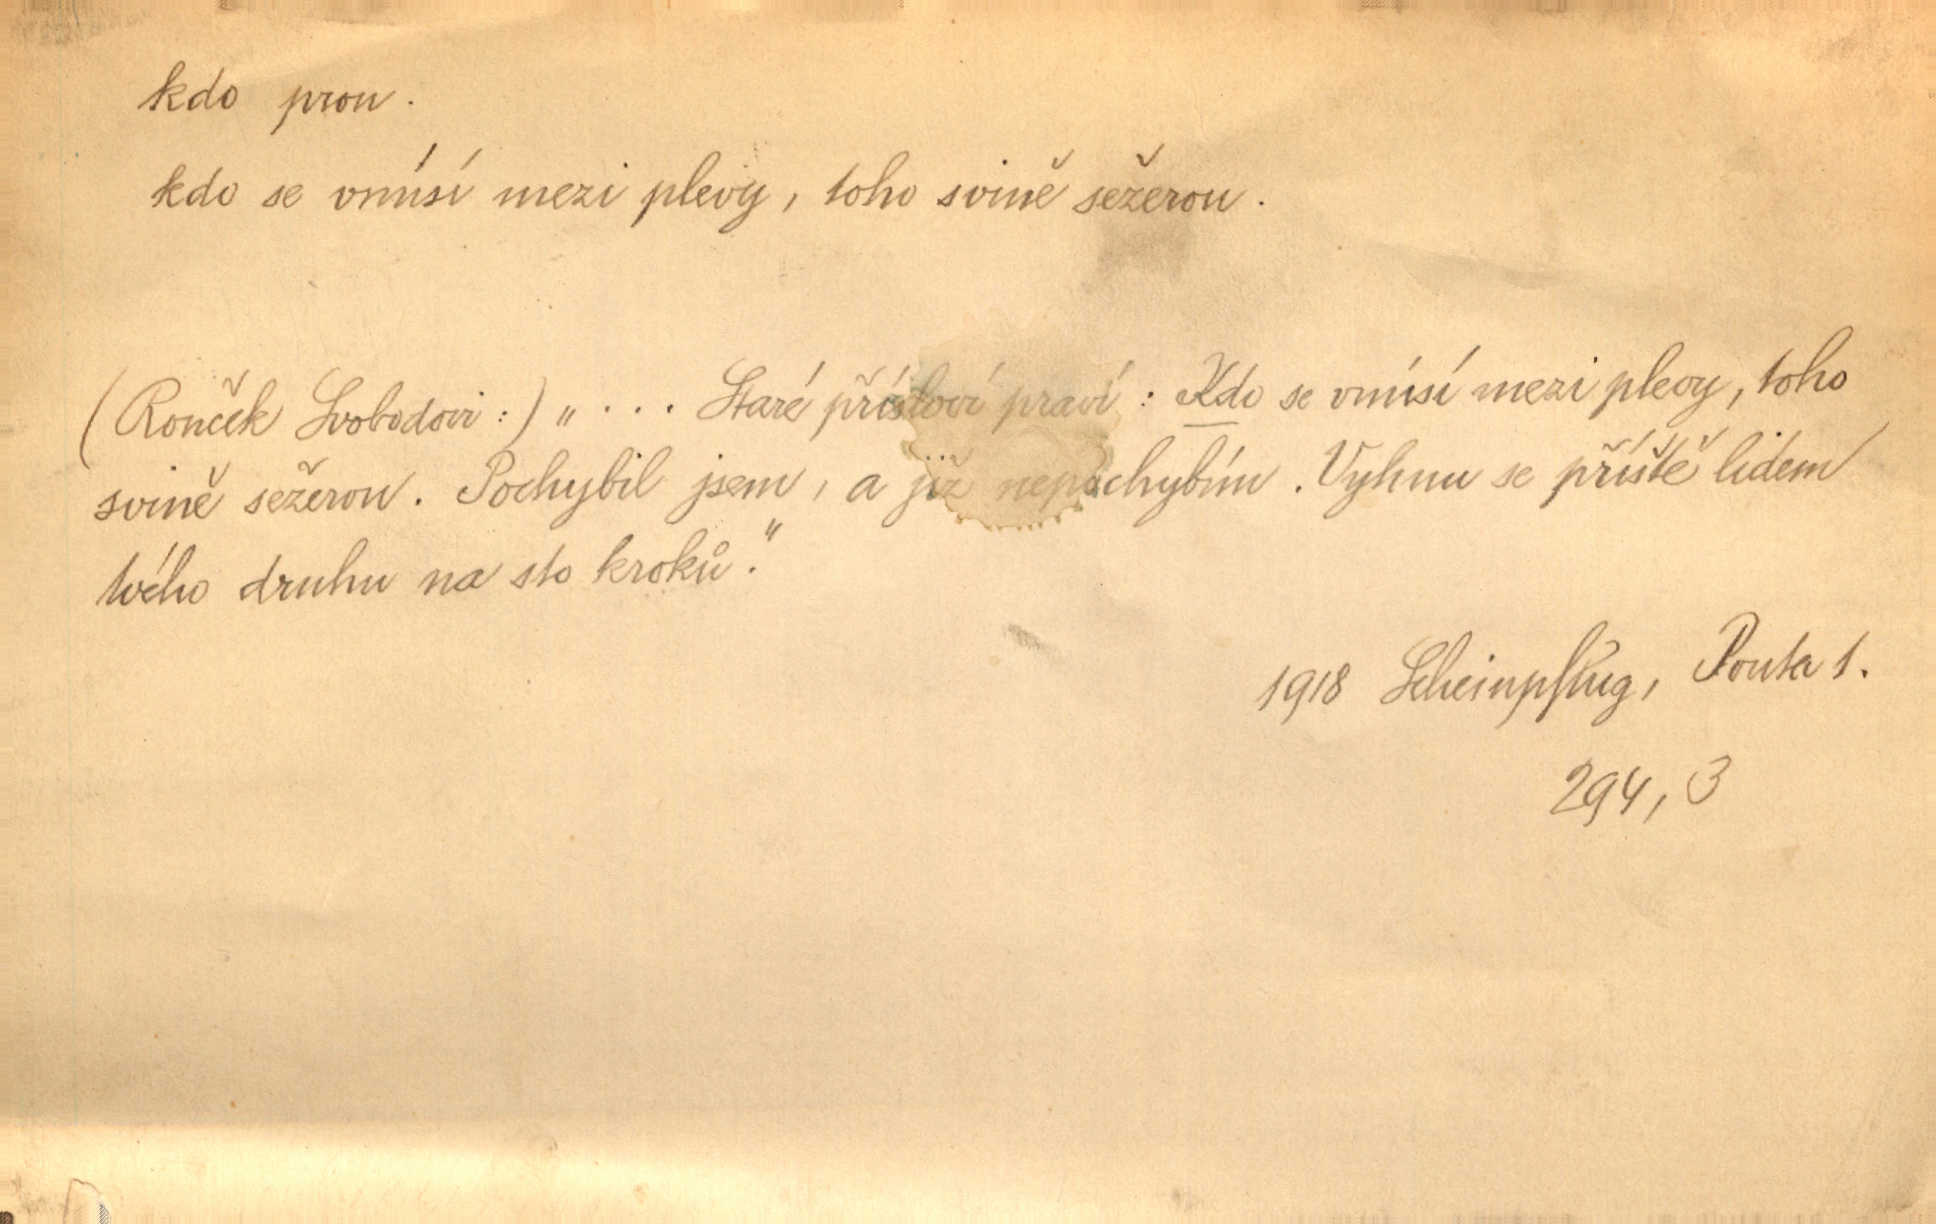 kdo pron.
kdo se vmísí mezi plevy, toho svině sežerou.
(Rouček Svobodovi:) „... Staré přísloví praví: Kdo se vmísí mezi plevy, toho
svině sežerou. Pochybil jsem, a již nepochybím. Vyhnu se příště lidem
tvého druhu na sto kroků."
1918 Scheinpflug, Pouta 1.
294, 3